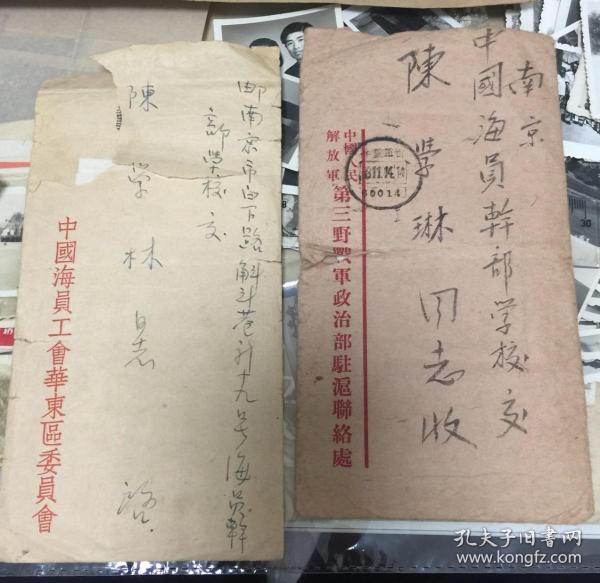 邮南京市白下路斛斗巷廿九号海员幹
部學校交
陳學林同志 啓
中國海員工會華東區委員會
南京
中國海員幹部学校交
陳學琳同志收
中國人民
解放軍
第三野戰軍政治部駐滬聯絡處
孔夫子旧书网
www.kongfz.com